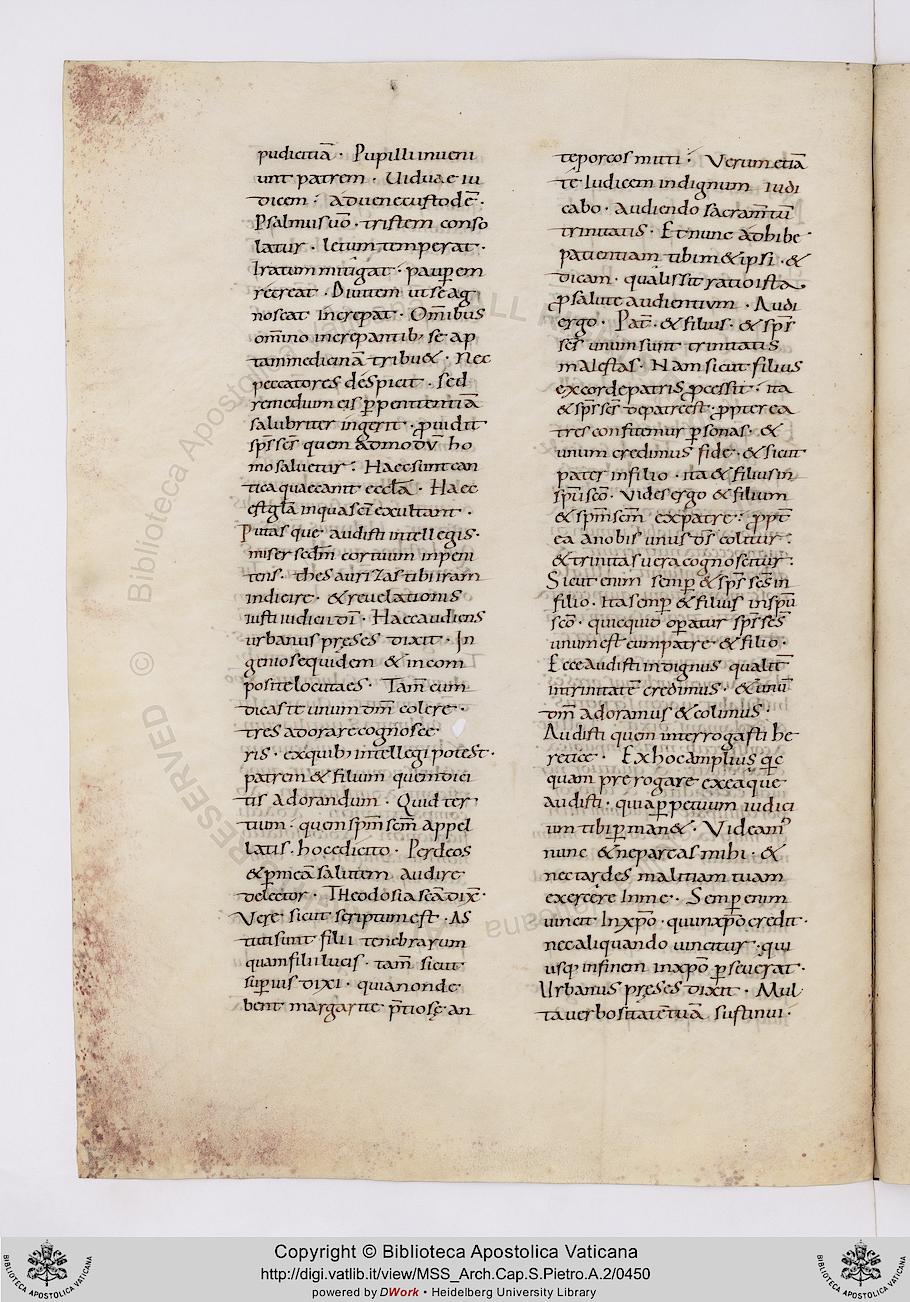 pudicitiā · Pupilli inueni
unt patrem · Uiduae iu
dicem · aduenecustodē ·
Psalmus uō · tristem conso
latur · letum temperat ·
Iratum mitigat · pauperem
recreat · Diuitem ut se ag
noscat increpat · Om̄ibus
om̄ino increpantib; se ap
tam medicinā tribu& · Nec
peccatores despicit · sed
remedium eis p̱ penitentiā
salubriter ingerit · ꝓuidit
sp̄s sc̄s quem admodū ho
mo saluetur : Haec sunt can
tica quae canit eccl̄a · Haec
est gl̄a in qua sc̄i exultant ·
Putas que audisti intellegis ·
miser sedm̄ cor tuum inpeni
tens · thesaurizas tibi iram
in die irę · & reuelationis
iusti iudicii dī · Haec audiens
urbanus pręses dixit · In
geniose quidem & incom
posite locuta es · Tam̄ cum
dicas te unum dm̄ colere ·
tres adorare cognosce
ris · ex quib; intellegi potest ·
patrem & filium quem dici
tis adorandum · Quid ter
tium · quem sp̄m sc̄m appel
latis · hoc edicito · Per deos
& p̱ meā salutem audire
delector · Theodosia sc̄a dix̄ ·
Vere sicut scriptum est · As
tuti sunt filii tenebrarum
quam filii lucis · tam̄ sicut
superius dixi · quia non de
bent margarite p̄tiosę an
te porcos mitti : Verum etiā
te Iudicem indignum iudi
cabo · audiendo sacram̄tū
trinitatis · Et nunc adhibe ·
patientiam tibim& ipsi · &
dicam · qualis sit ratio ista
ꝓ salute audientium · Audi
ergo · Pat̄ · & filius · & sp̄s
sc̄s unum sunt trinitatis
maiestas · Nam sicut filius
ex corde patris ꝓcessit · ita
& sp̄s sc̄s de patre est · ꝓpterea
tres confitemur p̱sonas · &
unum credimus fide · & sicut
pater in filio · ita & filius in
sp̄u sc̄o · Vides ergo & filium
& sp̄m sc̄m ex patre : ꝓpt̄
ea a nobis unus ds̄ colitur :
& trinitas uera cognoscitur :
Sicut enim semp̱ & sp̄s sc̄s in
filio · Ita semp̱ & filius in sp̄u
sc̄o · quicquid op̱atur sp̄s sc̄s
unum est cum patre · & filio ·
Ecce audisti indignus qualit̄
in trinitatē credimus · & unū
dm̄ adoramus & colimus :
Audisti quem interrogasti he
retice · Ex hoc amplius qc
quam pre rogare ex ea que
audisti · quia p̱petuum iudici
um tibi p̱man& · Videam᾿
nunc & ne parcas mihi · &
nec tardes malitiam tuam
exercere In me · Semp̱ enim
uincit In xp̄o · qui in xp̄o credit ·
nec aliquando uincitur · qui
usq; in finem in xp̄o p̱seuerat ·
Urbanus pręses dixit · Mul
ta uerbositatē tuā sustinui ·
Copyright © Biblioteca Apostolica Vaticana
http://digi.vatlib.it/view/MSS_Arch.Cap.S.Pietro.A.2/0450
powered by DWork • Heidelberg University Library
BIBLIOTECA APOSTOLICA VATICANA
BIBLIOTECA APOSTOLICA VATICANA